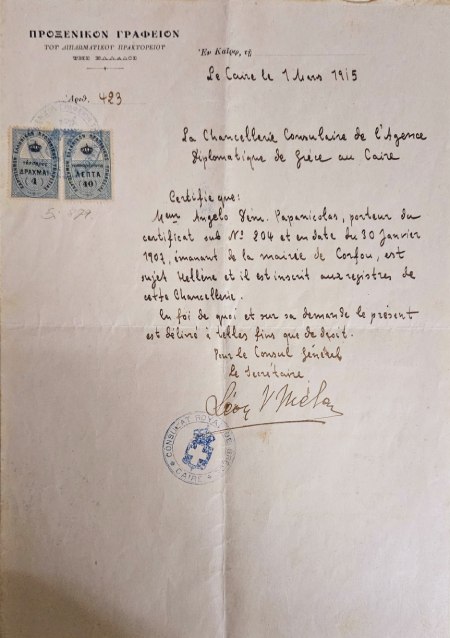 ΠΡΟΞΕΝΙΚΟΝ ΓΡΑΦΕΙΟΝ
ΤΟΥ ΔΙΠΛΩΜΑΤΙΚΟΥ ΠΡΑΚΤΟΡΕΙΟΥ
ΤΗΣ ΕΛΛΑΔΟΣ
Ἐν Καΐρῳ, τῇ
Le Caire le 1 Mars 1915
Ἀριθ. 423
ΔΡΑΧΜΑΙ
(4)
ΛΕΠΤΑ
(40)
La Chancellerie Consulaire de l'Agence
Diplomatique de Grèce au Caire
Certifie que:
Angelo Papanicolas, porteur du
certificat sub Nº 204 et en date du 30 Janvier
1907, émanant de la mairée de Corfou, est
sujet Hellène et il est inscrit aux registres de
cette Chancellerie.
En foi de quoi et sur sa demande le présent
est délivré à telles fins que de droit.
Pour le Consul Général
Le Secrétaire
CONSULAT ROYAL DE GRÈCE
CAIRE